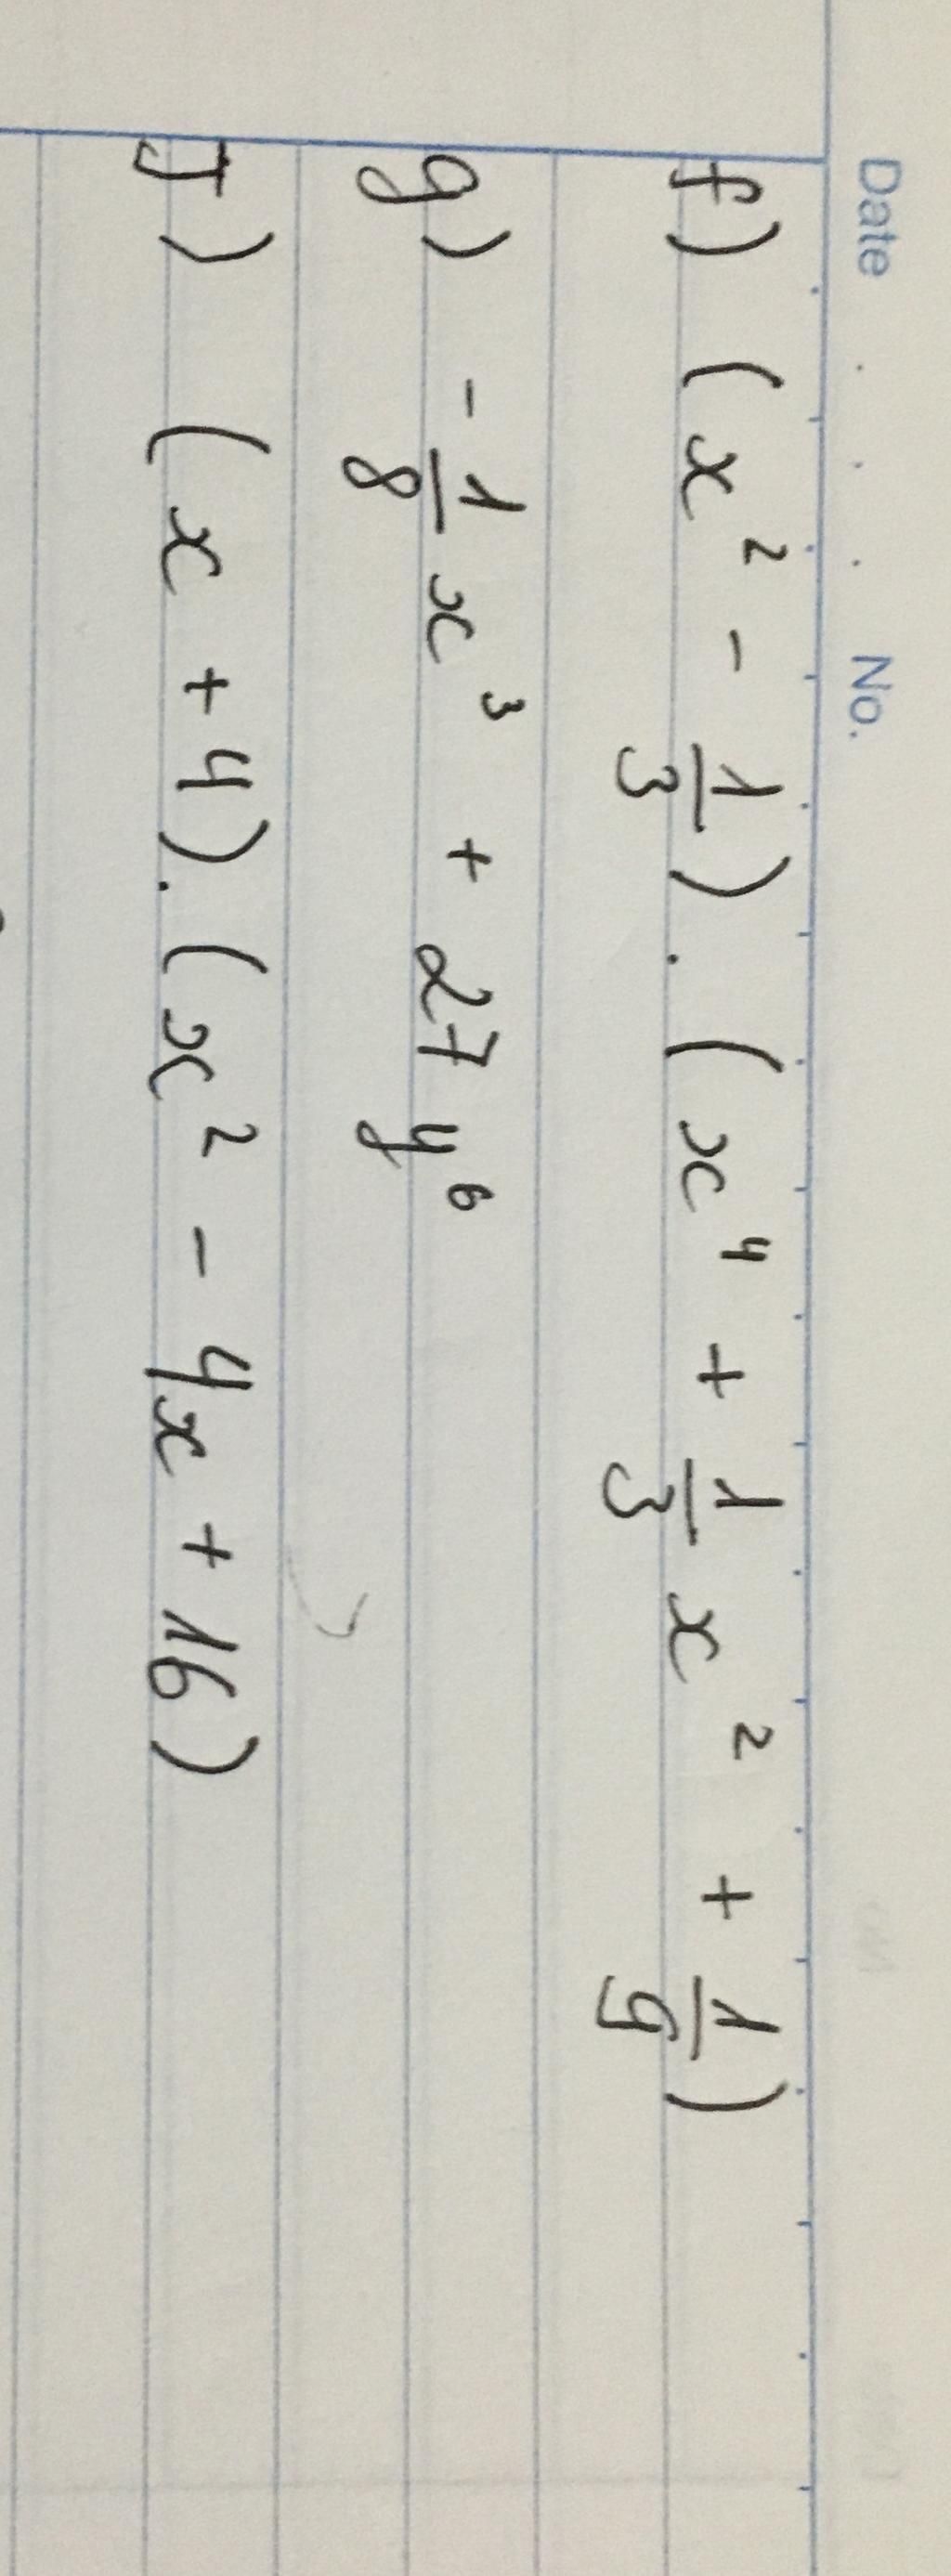 Date No.
f) (x² - 1/3). (x⁴ + 1/3 x² + 1/9)
g) - 1/8 x³ + 27y⁶
J) (x + 4). (x² - 4x + 16)